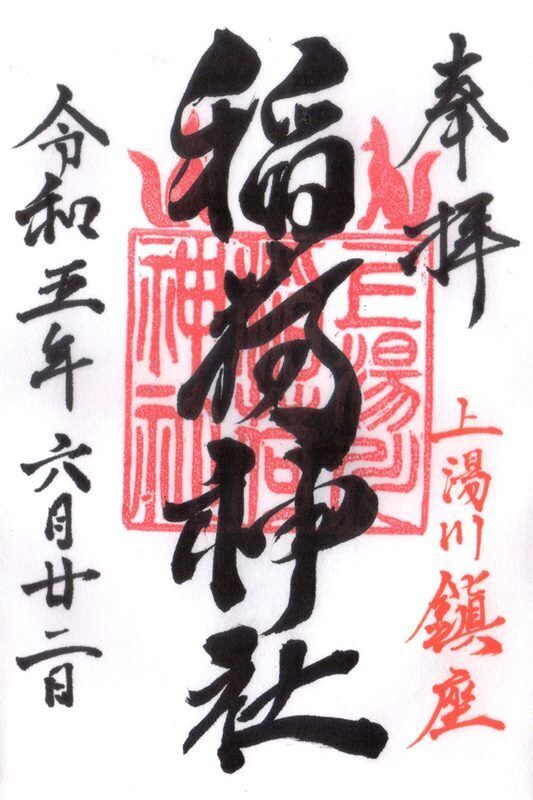 奉拝
上湯川鎮座
稲荷神社
上湯川
稲荷
神社
令和五年六月廿二日